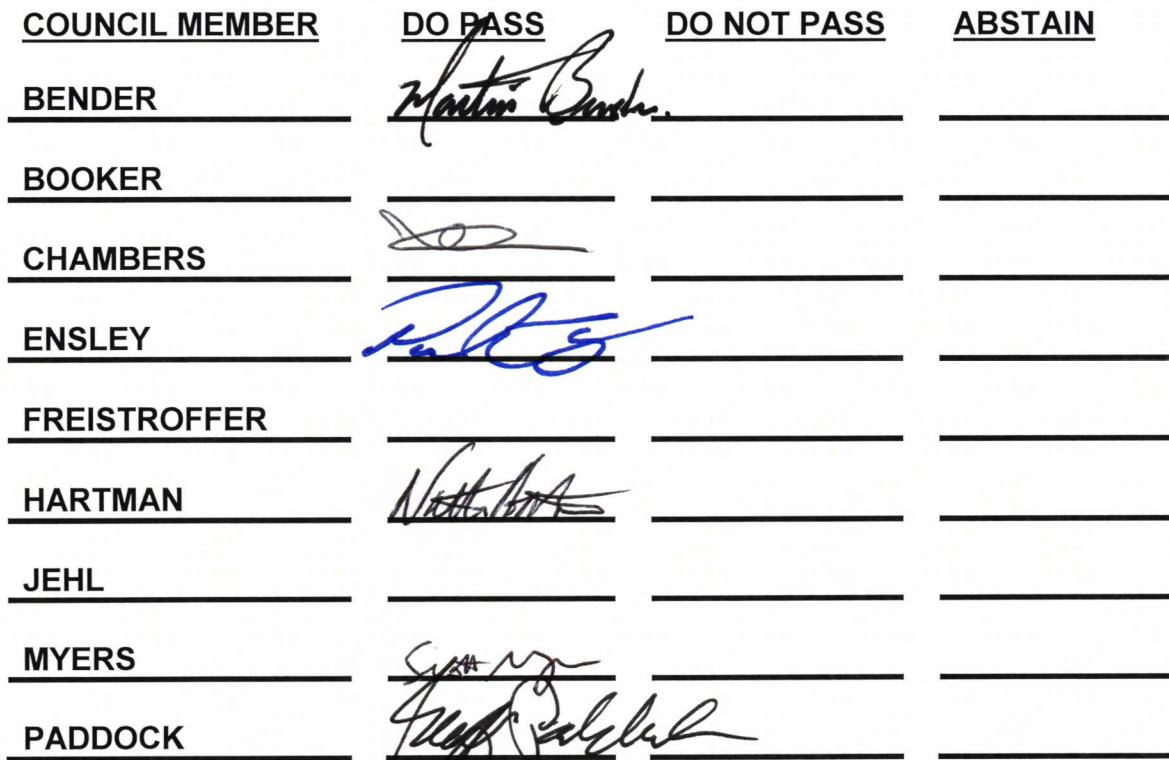 COUNCIL MEMBER DO PASS DO NOT PASS ABSTAIN
BENDER Martin Bender
BOOKER
CHAMBERS
ENSLEY
FREISTROFFER
HARTMAN
JEHL
MYERS
PADDOCK